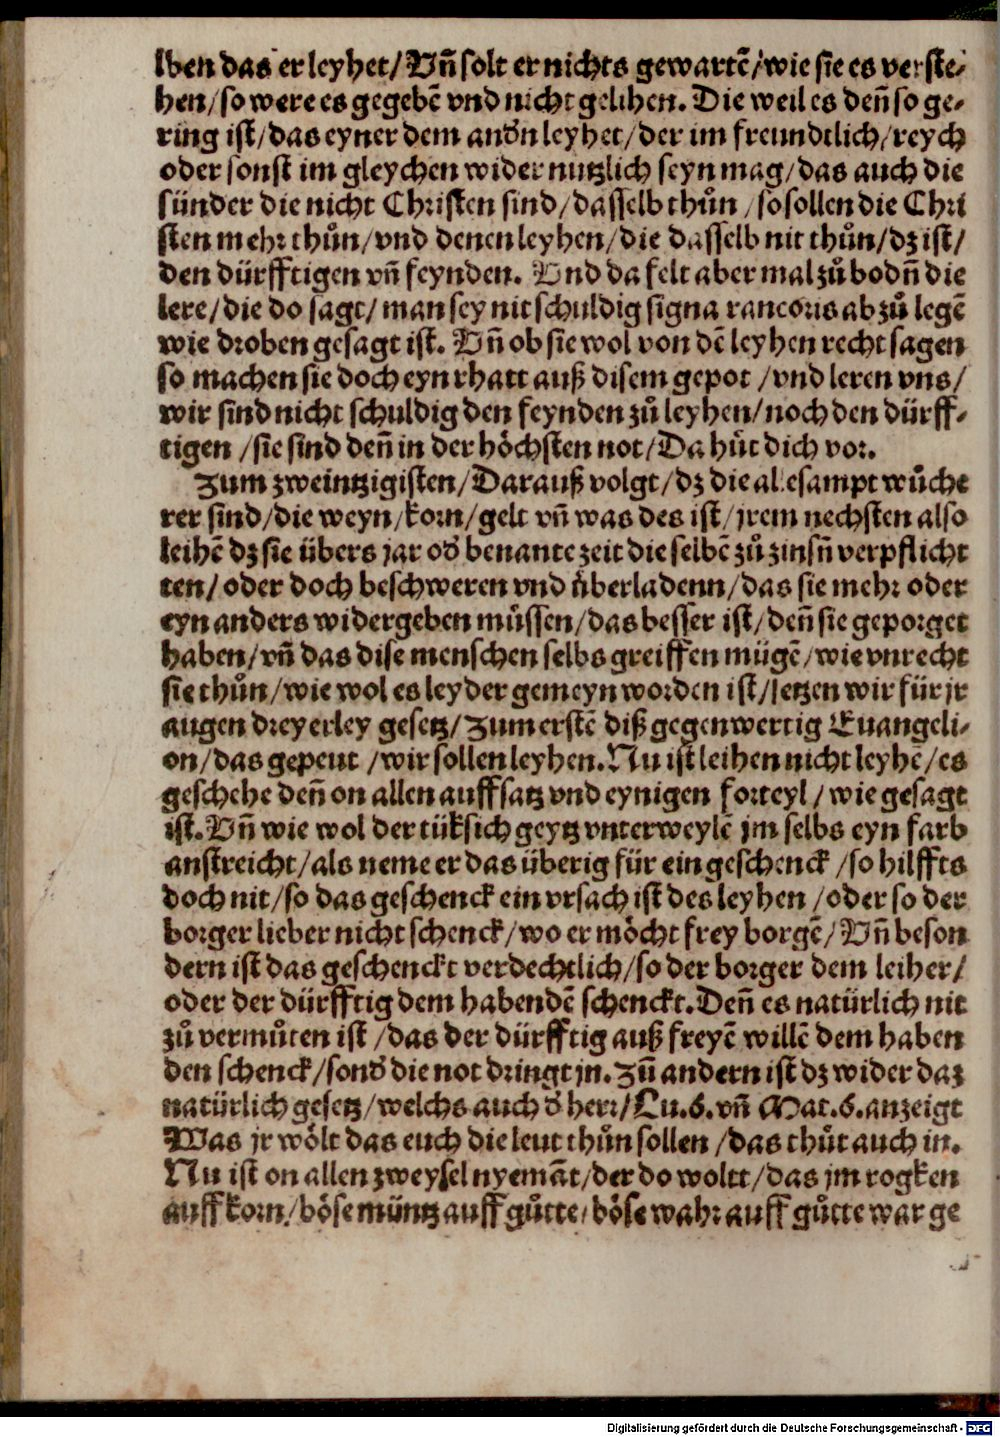 lben das er leyhet/ Vn̄ solt er nichts gewartē/ wie sie es verste⸗
hen/ so were es gegebē vnd nicht gelihen. Die weil es den̄ so ge⸗
ring ist/ das eyner dem andn̄ leyhet/ der im freundtlich/ reych
oder sonst im gleychen wider nutzlich seyn mag/ das auch die
sünder die nicht Christen sind/ dasselb thůn / so sollen die Chri
sten mehr thůn/ vnd denen leyhen/ die dasselb nit thůn/ dz ist/
den dürfftigen vn̄ feynden. Vnd da felt aber mal zů bodn̄ die
lere/ die do sagt/ man sey nit schuldig signa rancoris ab zů legē
wie droben gesagt ist. Vn̄ ob sie wol von dē leyhen recht sagen
so machen sie doch eyn rhatt auß disem gepot / vnd leren vns/
wir sind nicht schuldig den feynden zů leyhen/ noch den dürff⸗
tigen / sie sind den̄ in der höchsten not/ Da hůt dich vor.
Zum zweintzigisten/ Darauß volgt/ dz die allesampt wůche
rer sind/ die weyn/ korn/ gelt vn̄ was des ist/ jrem nechsten also
leihē dz sie übers jar od' benante zeit die selbē zů zinsn̄ verpflicht
ten/ oder doch beschweren vnd überladenn/ das sie mehr oder
eyn anders widergeben můssen/ das besser ist/ den̄ sie geporget
haben/ vn̄ das dise menschen selbs greiffen mügē/ wie vnrecht
sie thůn/ wie wol es leyder gemeyn worden ist/ setzen wir für jr
augen dreyerley gesetz/ Zum erstē diß gegenwertig Euangeli⸗
on/ das gepeut / wir sollen leyhen. Nu ist leihen nicht leyhē/ es
geschehe den̄ on allen auffsatz vnd eynigen forteyl / wie gesagt
ist. Vn̄ wie wol der tüksich geytz vnterweylē jm selbs eyn farb
anstreicht/ als neme er das überig für ein geschenck / so hilffts
doch nit/ so das geschenck ein vrsach ist des leyhen / oder so der
borger lieber nicht schenck/ wo er möcht frey borgē/ Vn̄ beson
dern ist das geschenckt verdechtlich/ so der borger dem leiher/
oder der dürfftig dem habendē schenckt. Den̄ es natürlich nit
zů vermůten ist / das der dürfftig auß freyē willē dem haben
den schenck/ sond' die not dringt jn. Zū andern ist dz wider daz
natürlich gesetz/ welchs auch d' herr/ Lu. 6. vn̄ Mat. 6. anzeigt
Was jr wölt das euch die leut thůn sollen / das thůt auch in.
Nu ist on allen zweyfel nyemāt/ der do woltt/ das jm rogken
auff korn/ böse müntz auff gůtte/ böse wahr auff gůtte war ge
Digitalisierung gefördert durch die Deutsche Forschungsgemeinschaft - DFG